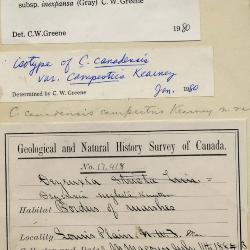 subsp. inexpansa (Gray) C.W. Greene
Det. C.W. Greene 1980
isotype of C. canadensis
var. campestris Kearney
Determined by C. W. Greene Jan. 1980
C canadensis campestris Kearney
Geological and Natural History Survey of Canada.
No. 17,418
Deyeuxia
Deyeuxia neglecta
Habitat Borders of marshes
Locality Louis Plain, N.W.T.